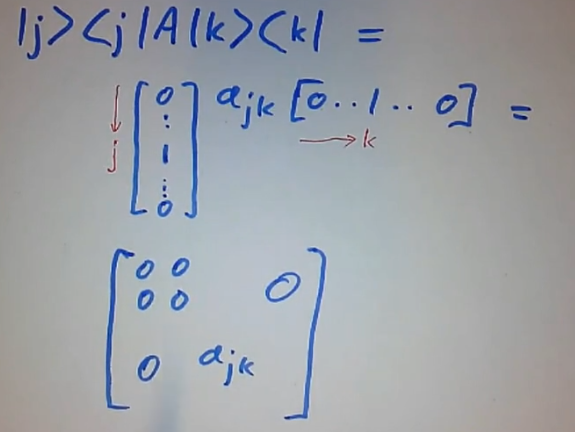 |j><j|A|k><k| =
↓ j [0 ⋮ 1 ⋮ 0] a_jk [0..1.. 0] =
→ k
[0 0
0 0 0
0 a_jk]